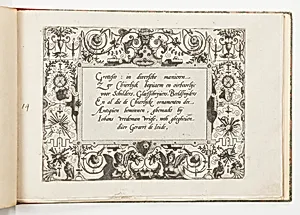 Grottesco: in diversche manieren
Zeer Chierlijck bequaem en oorboorlijc
voor Schilders, Glaesschryvers, Beeltsnyders
En al die de Chierlijcke ornamenten der
Antiquen beminnen, ghemaeckt by
Iohans vredeman vriese,
duer Gerart de Iode,
14